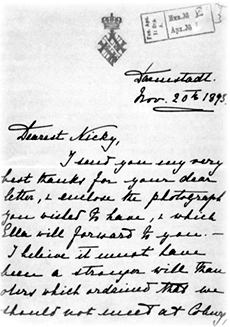 Darmstadt.
Nov. 20th 1893
Dearest Nicky,
I send you my very
best thanks for your dear
letter, & enclose the photograph
you wished to have, & which
Ella will forward to you. —
I believe it must have
been a stronger will than
others which ordained that we
should not meet at Coburg,